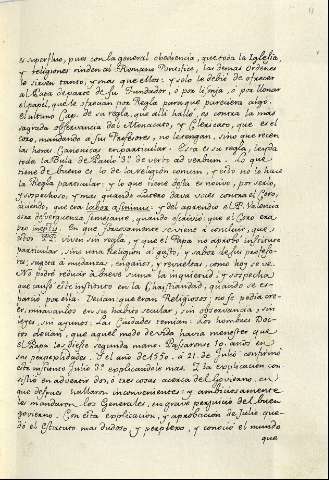 es superfluo, pues con la general obediencia, que toda la Iglesia,
y religiones rinden al Romano Pontifice, las demas Ordenes
le sirven tanto, y mas que ellos: y solo le debió de ofrecer
al Papa de parte de su Fundador, ó por lisonja, ó por llenar
el papel, que le ofrecian por Regla para que pareciera algo.
El ultimo Cap. de su regla, que allí hallo, es contra la mas
sagrada observancia del Monacato, y Clericato, que es el
Coro, mandando a sus Profesores, no le tengan, sino que recen
las horas Canonicas en particular. Esta es su regla, leyda
toda la Bula de Paulo 3º de verbo ad verbum. Lo que
tiene de bueno es lo de la religion comun, y esto no lo hace
la Regla particular: y lo que tiene de la es nuevo, por serlo,
y sospechoso, y mas quando Lutero dava voces contra el Coro,
diciendo que era labor asininus: y del aprender el P. Valencia
esta desverguenza semejante, quando escrivió que el Coro era
pro ineptis. En que forzosamente se viene á concluir, que es-
tos PP. viven sin regla, y que el Papa no aprobó instituto
particular, sino una Religion á gusto, y sabor de los profeso-
res, sugeta á mudanzas, engaños, y revueltas, como hoy se ve.
No podré reducir á breve suma la inquietud, y sospecha
que causó este instituto en la Christiandad, quando se es-
parció por ella. Decian que eran Religiosos, no se podia cre-
er, miravanlos en su habito secular, sin observancia, sin
leyes, sin ayunos: las Ciudades temian. Los hombres Doc-
tos decian, que aquel modo de vida havia menester que
el Papa les diese segunda mano. Pasaronse 10. años en
sus perplexidades. Y el año de 1550. á 21. de Julio confirmó
este instituto Julio 3º explicandole mas. Y la explicacion con-
sistió en advertir dos, ó tres cosas acerca del Govierno, en
que despues hallaron inconvenientes; y ambiciosamente
las mudaron los Generales, en grave perjuicio del buen
govierno. Con esta explicacion, y aprobacion de Julio que-
dó el Estatuto mas dudoso, y perplexo, y conoció el mundo
que